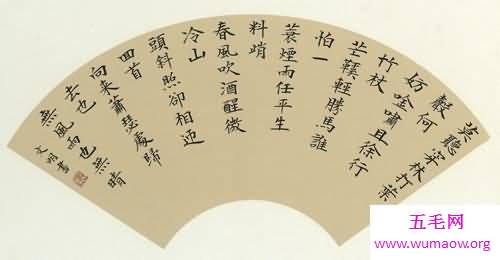 莫聽穿林打葉
聲何
妨吟嘯且徐行
竹杖
芒鞵輕勝馬誰
怕一
蓑煙雨任平生
料峭
春風吹酒醒微
冷山
頭斜照卻相迎
回首
向来蕭瑟處歸
去也
無風雨也無晴
文明書
五毛网
www.wumaow.org